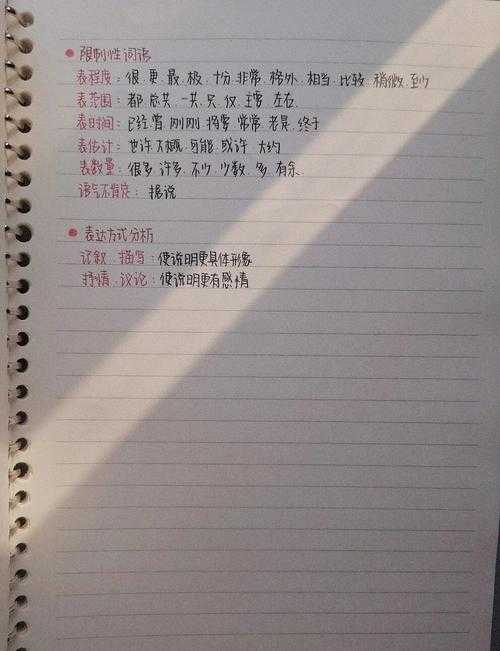 限制性词语
表程度：很.更.最.极.十分.非常.格外.相当.比较.稍微.至少
表范围：都.总共.一共.只.仅.主要.左右.
表时间：已经.曾.刚刚.将要.常常.老是.终于
表估计：也许.大概.可能.或许.大约
表数量：很多.许多.不少.少数.多.有余.
语气不肯定：据说
表达方式分析
记叙.描写：使说明更具体形象
抒情.议论：使说明更有感情